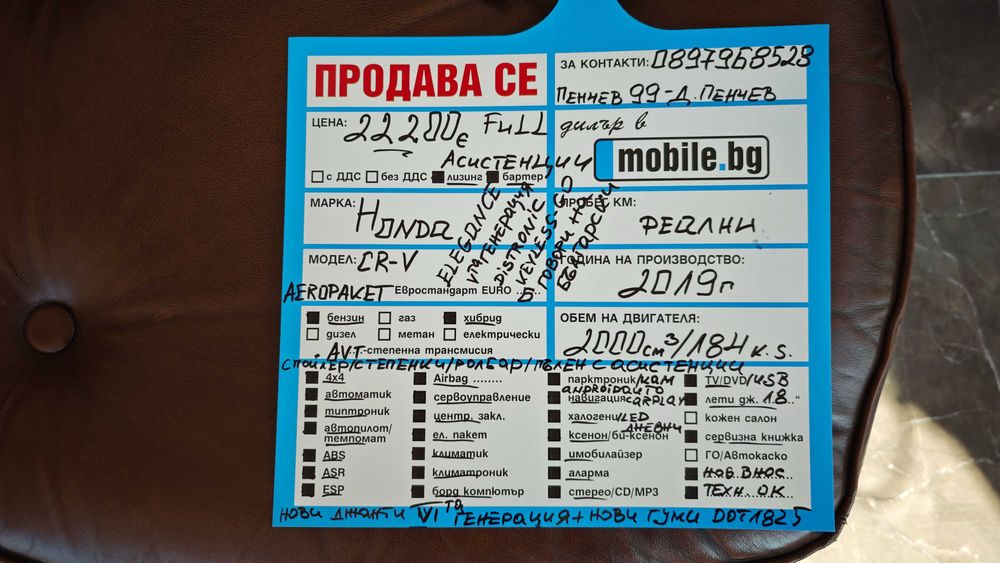 ПРОДАВА СЕ
ЗА КОНТАКТИ: 0897968528
ПЕНЧЕВ 99-Д. ПЕНЧЕВ
ЦЕНА: 22200€ FULL
АСИСТЕНЦИИ
с ДДС без ДДС лизинг бартер
дилър в
mobile.bg
МАРКА: HONDA
ПРОБЕГ КМ:
РЕАЛНИ
ELEGANCE
DISTRONIC
KEYLESS-GO
ГОВОРИ НА
БЪЛГАРСКИ
МОДЕЛ: CR-V
AEROPAKET Евростандарт EURO 6
ГОДИНА НА ПРОИЗВОДСТВО:
2019г
бензин газ хибрид
дизел метан електрически
AVT.-степенна трансмисия
ОБЕМ НА ДВИГАТЕЛЯ:
2000см³/184 k.s.
СПОЙЛЕР/СТЕПЕНКИ/РОЛБАР/ПЪЛЕН С АСИСТЕНЦИИ
4x4
автоматик
типтроник
автопилот/
темпомат
ABS
ASR
ESP
Airbag ........
сервоуправление
центр. закл.
ел. пакет
климатик
климатроник
борд компютър
парктроник/КАМ
ANDROIDAUTO
навигация CARPLAY
халогени/LED
ДНЕВНИ
ксенон/би-ксенон
имобилайзер
аларма
стерео/CD/MP3
TV/DVD/USB
лети дж. 18.."
кожен салон
сервизна книжка
ГО/Автокаско
НОВ ВНОС
ТЕХН. ОК
НОВИ ДЖАНТИ VI ТА ГЕНЕРАЦИЯ + НОВИ ГУМИ DOT1825